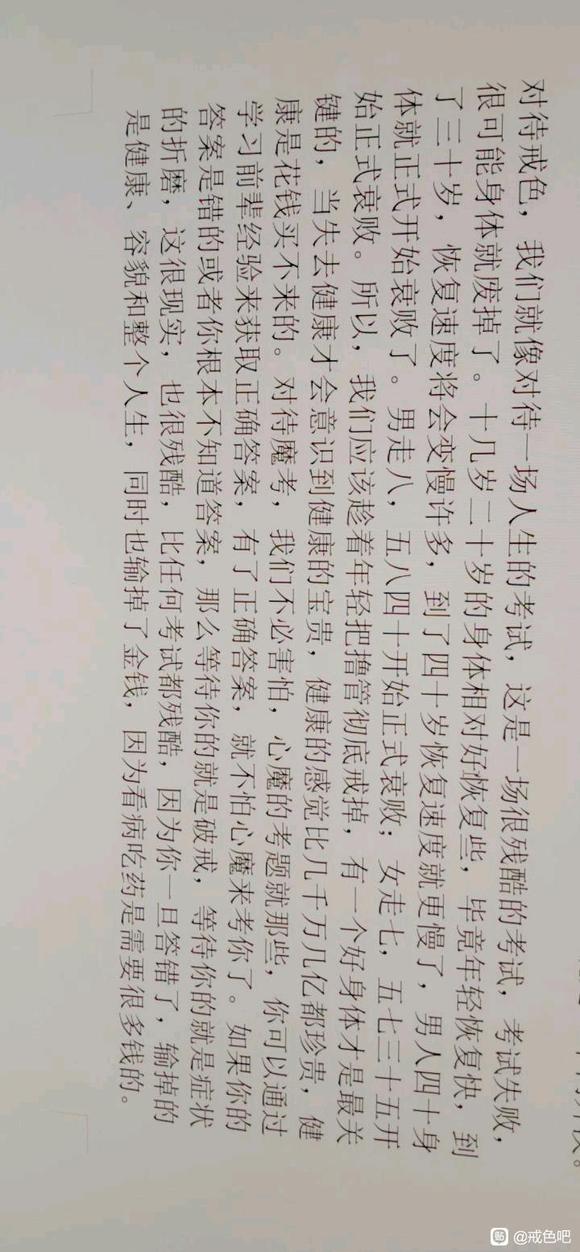 对待戒色，我们就像对待一场人生的考试，这是一场很残酷的考试，考试失败，
很可能身体就废掉了。十几岁二十岁的身体相对好恢复些，毕竟年轻恢复快，到
了三十岁，恢复速度将会变慢许多，到了四十岁恢复速度就更慢了，男人四十身
体就正式开始衰败了。男走八，五八四十开始正式衰败；女走七，五七三十五开
始正式衰败。所以，我们应该趁着年轻把撸管彻底戒掉，有一个好身体才是最关
键的，当失去健康才会意识到健康的宝贵，健康的感觉比几千万几亿都珍贵，健
康是花钱买不来的。对待魔考，我们不必害怕，心魔的考题就那些，你可以通过
学习前辈经验来获取正确答案，有了正确答案，就不怕心魔来考你了。如果你的
答案是错的或者你根本不知道答案，那么等待你的就是破戒，等待你的就是症状
的折磨，这很现实，也很残酷，比任何考试都残酷，因为你一旦答错了，输掉的
是健康、容貌和整个人生，同时也输掉了金钱，因为看病吃药是需要很多钱的。
贴 @戒色吧